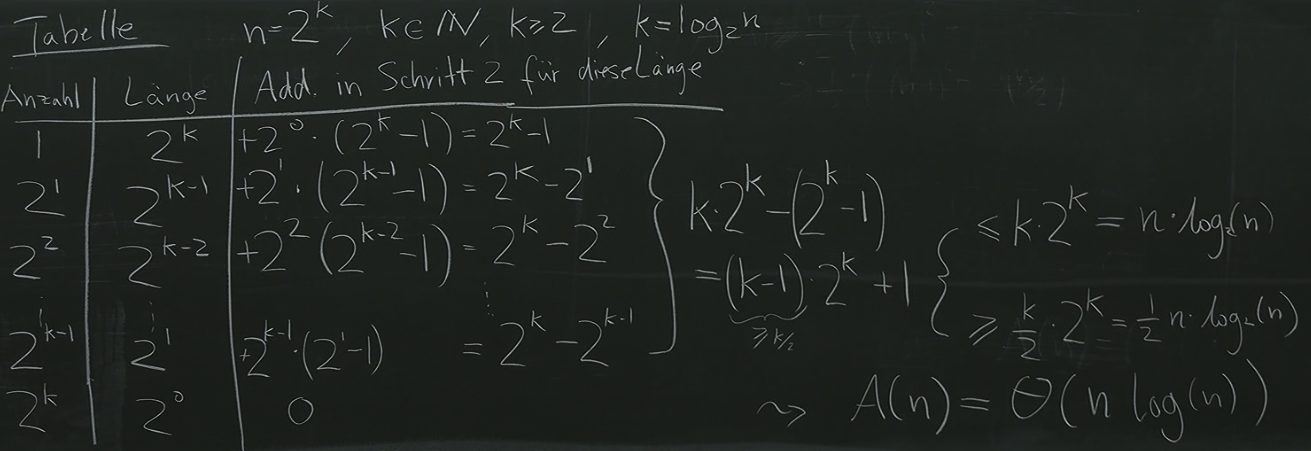 Tabelle n=2^k, k∈ℕ, k≥2, k=log₂n
Anzahl | Länge | Add. in Schritt 2 für diese Länge
1 | 2^k | +2^0·(2^k-1)=2^k-1
2^1 | 2^(k-1) | +2^1·(2^(k-1)-1)=2^k-2^1
2^2 | 2^(k-2) | +2^2(2^(k-2)-1)=2^k-2^2
⋮ ⋮ ⋮
2^(k-1) | 2^1 | +2^(k-1)·(2^1-1) =2^k-2^(k-1)
2^k | 2^0 | 0
k·2^k-(2^k-1)
=(k-1)·2^k+1
≥k/2
≤k·2^k=n·log₂(n)
≥k/2·2^k=1/2 n·log₂(n)
⇝ A(n)=Θ(n log(n))